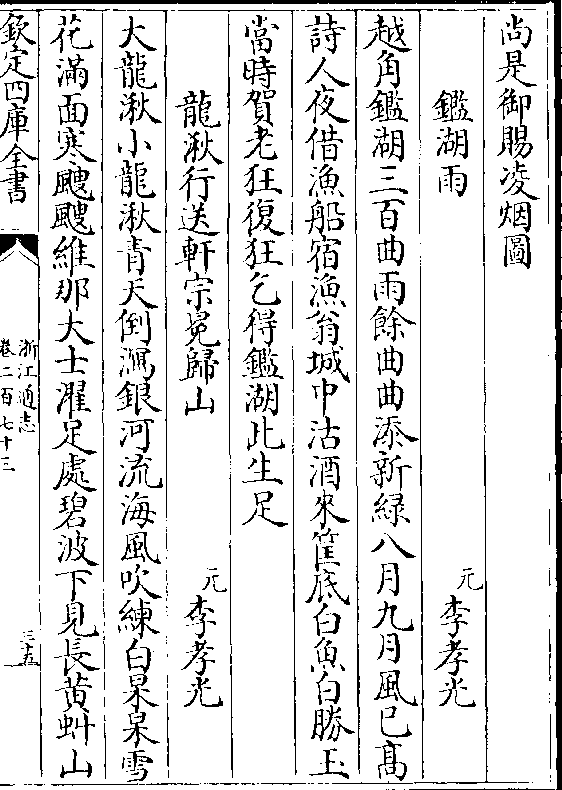 尚是御賜凌烟圖
鑑湖雨
元李孝光
越角鑑湖三百曲雨餘曲曲添新緑八月九月風已髙
詩人夜借漁船宿漁翁城中沽酒來筐底白魚白勝玉
當時賀老狂復狂乞得鑑湖此生足
龍湫行送軒宗冕歸山
元李孝光
大龍湫小龍湫青天倒瀉銀河流海風吹練白杲杲雪
花滿面寒颼颼維那大士濯足處碧波下見長黄虯山
欽定四庫全書
浙江通志
卷二百七十三
三十五